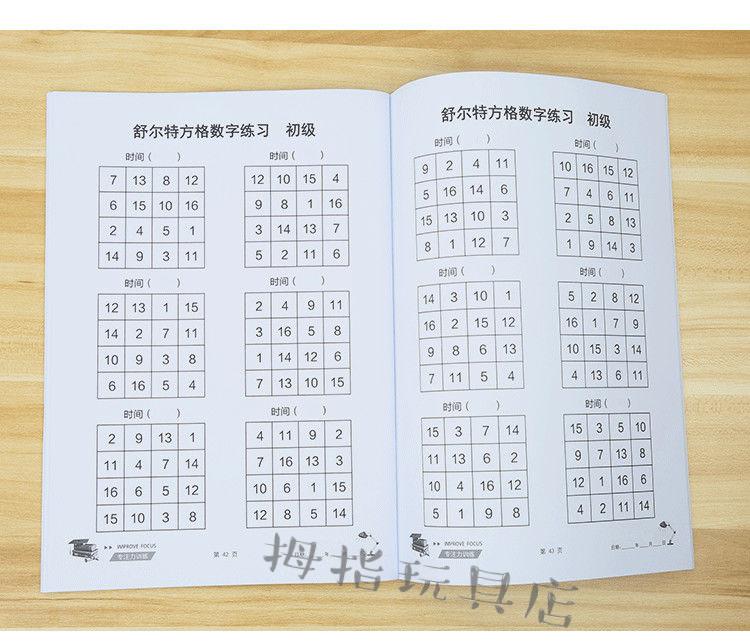 舒尔特方格数字练习 初级
时间 ( ) 时间 ( )
7 13 8 12
6 15 10 16
2 4 5 1
14 9 3 11
12 10 15 4
9 8 1 16
3 14 13 7
5 2 11 6
时间 ( ) 时间 ( )
12 13 1 15
14 2 7 11
10 9 3 8
6 16 5 4
2 4 9 11
3 16 5 8
1 14 12 6
7 13 10 15
时间 ( ) 时间 ( )
2 9 13 1
11 4 7 14
16 6 5 12
15 10 3 8
4 11 9 2
7 16 13 3
10 6 1 15
12 8 5 14
IMPROVE FOCUS
专注力训练
第 42 页
舒尔特方格数字练习 初级
时间 ( ) 时间 ( )
9 2 4 11
5 16 14 6
15 13 10 3
8 1 12 7
10 16 15 12
7 4 6 11
2 5 8 13
1 9 14 3
时间 ( ) 时间 ( )
14 3 10 1
16 2 15 12
9 8 6 13
7 11 5 4
5 2 8 12
16 1 7 9
10 15 3 14
4 13 6 11
时间 ( ) 时间 ( )
15 3 7 14
11 13 6 2
10 4 16 12
5 1 9 8
15 3 5 10
9 7 13 8
12 1 16 6
4 2 11 14
IMPROVE FOCUS
专注力训练
第 43 页
日期:____年__月__日
拇指玩具店